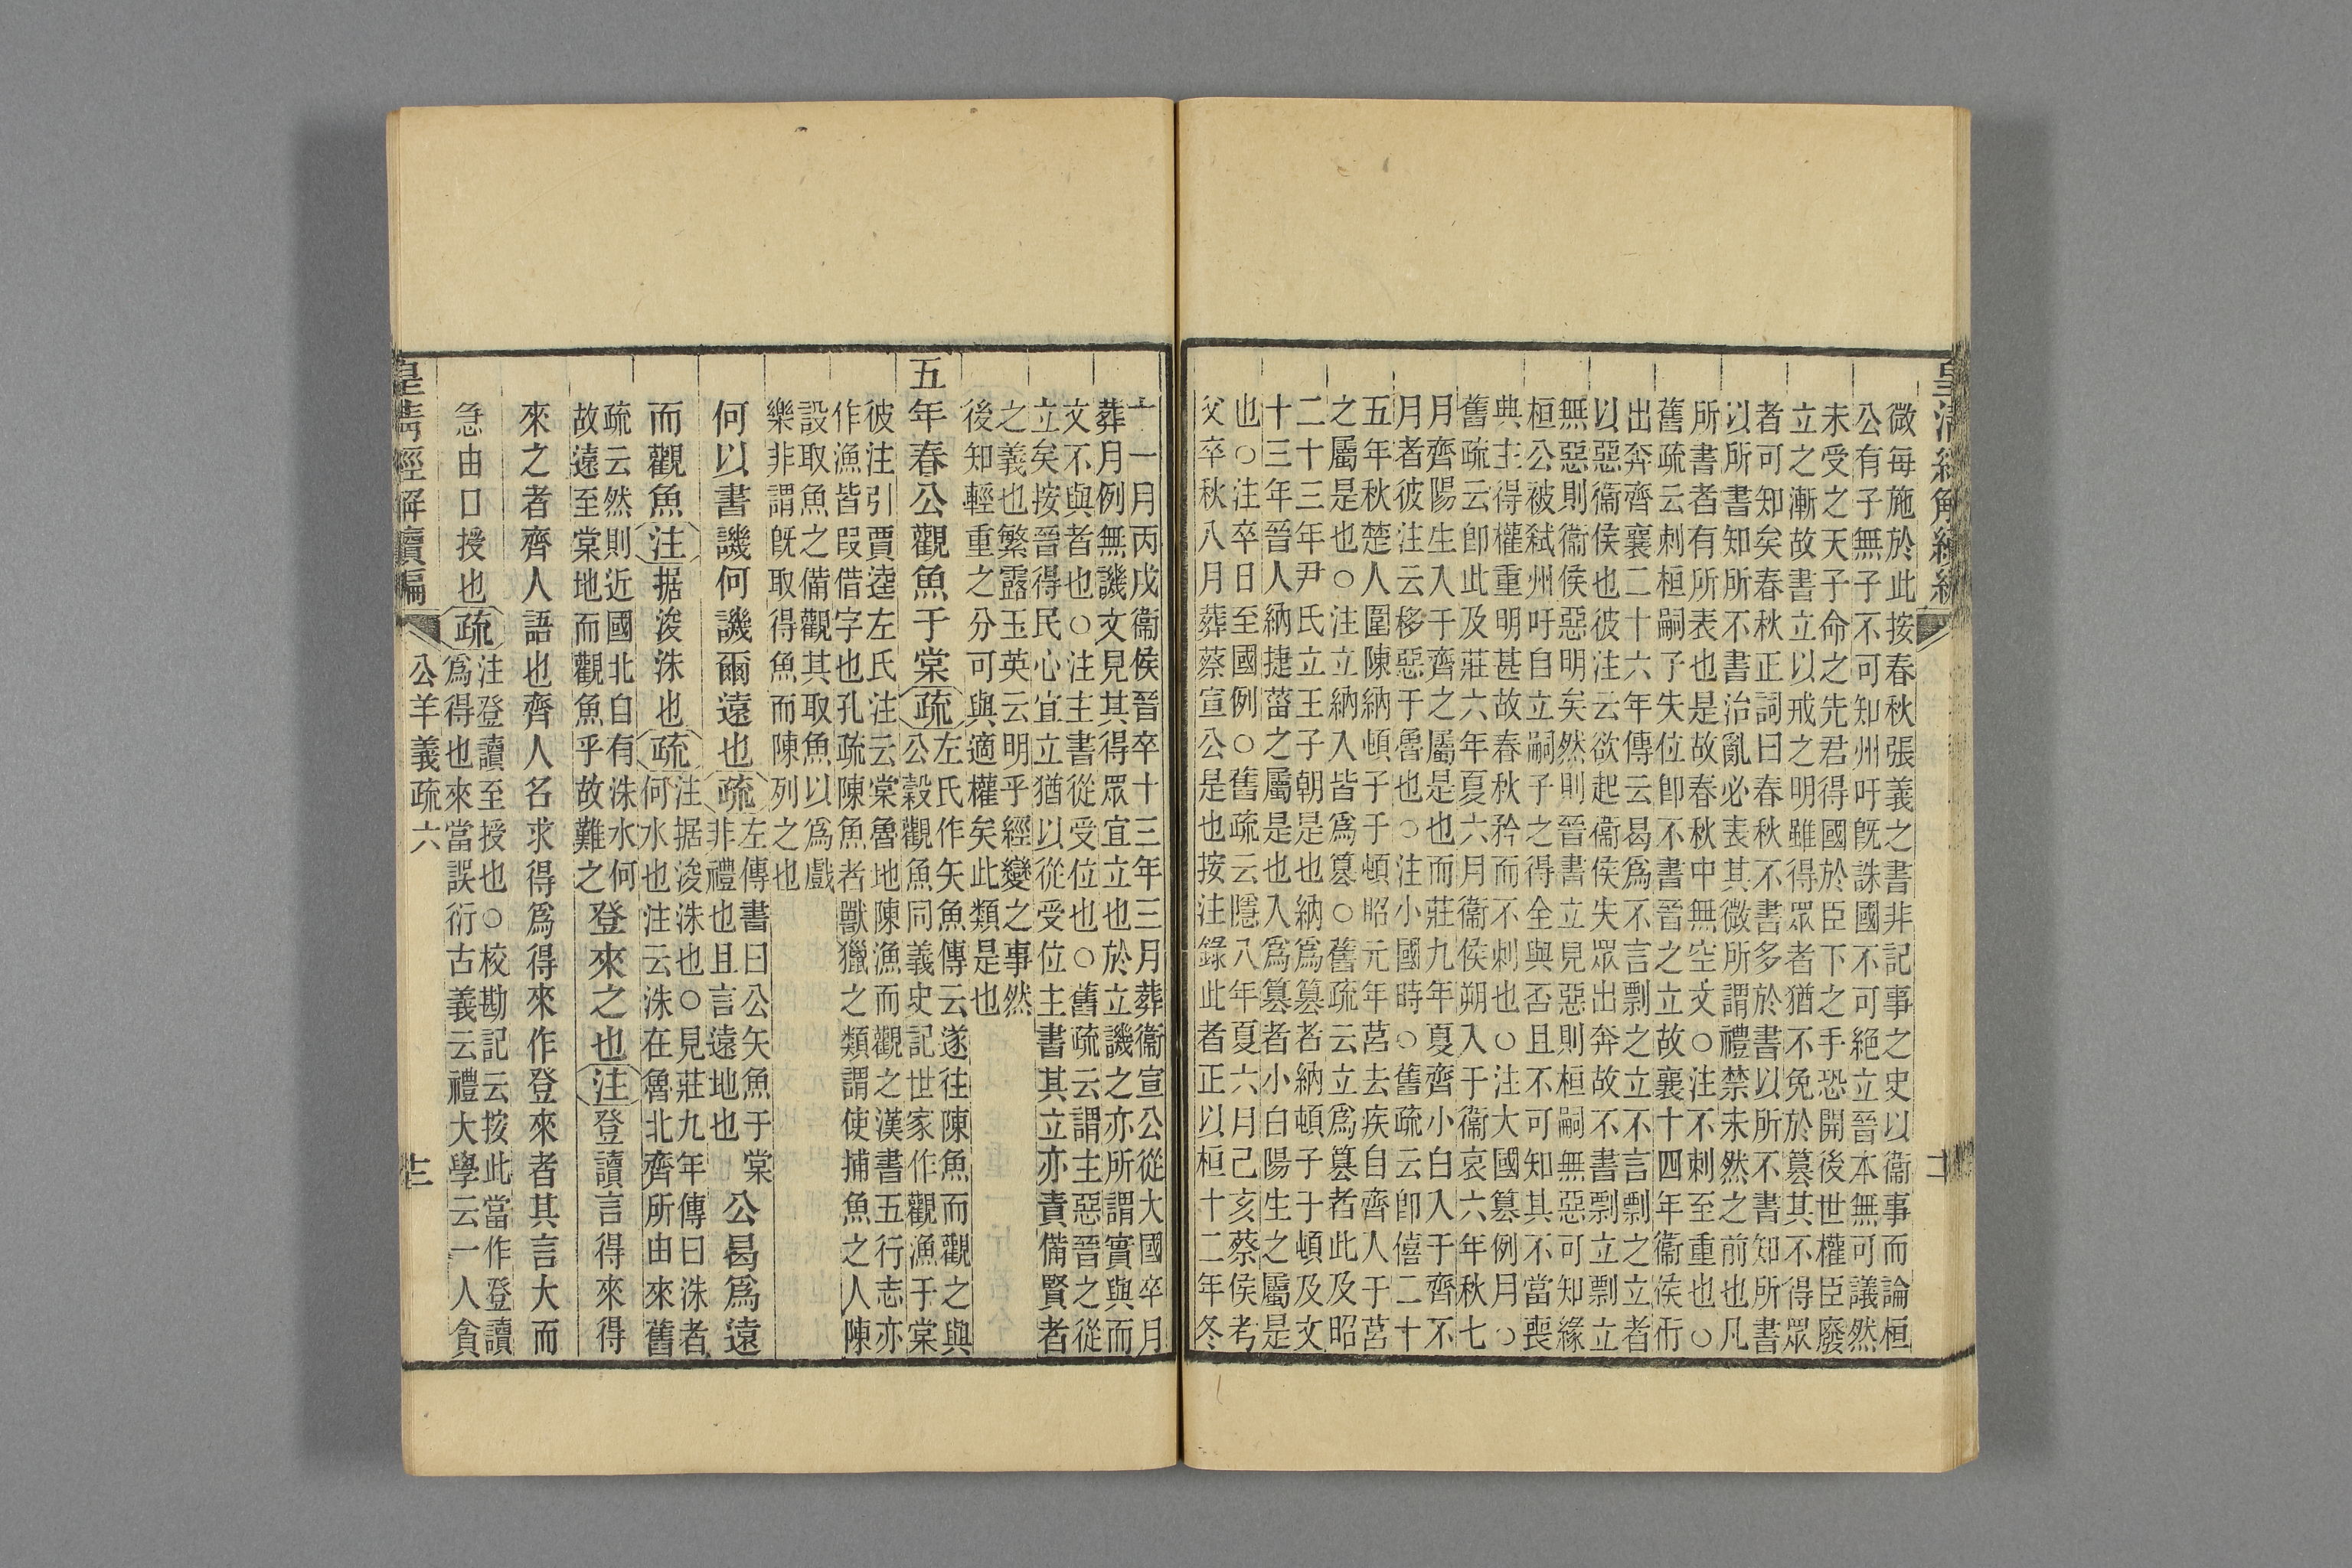 皇清經解續編
二
微每施於此按春秋張義之書非記事之史以衞事而論桓
公有子無子不可知州吁旣誅國不可絕立晉本無可議然
未受之天子命之先君得國於臣下之手恐開後世權臣廢
立之漸故書立以戒之明雖得眾者猶不免於篡其不得眾
者可知矣春秋正詞曰春秋不書多於書以所不書知所書
以所書知所不書治亂必表其微所謂禮禁未然之前也凡
所書者有所表也是故春秋中無空文○注不刺至重也○
舊疏云刺桓嗣子失位卽不書晉之立故襄十四年衞侯衎
出奔齊襄二十六年傳云曷爲不言剽之立不言剽之立者
以惡衞侯也彼注云欲起衞侯失眾出奔故不書剽立剽立
無惡則衞侯惡明矣然則晉書立見惡則桓嗣無惡可知緣
桓公被弑州吁自立嗣子之得全與否且不可知其不當喪
典主得權重明甚故春秋矜而不刺也○注大國篡例月○
舊疏云卽此及莊六年夏六月衞侯朔入于衞哀六年秋七
月齊陽生入于齊之屬是也而莊九年夏齊小白入于齊不
月者彼注云移惡于魯也○注小國時○舊疏云卽僖二十
五年秋楚人圍陳納頓子于頓昭元年莒去疾自齊人于莒
之屬是也○注立納入皆爲篡○舊疏云立爲篡者此及昭
二十三年尹氏立王子朝是也納爲篡者納頓子于頓及文
十三年晉人納捷菑之屬是也入爲篡者小白陽生之屬是
也○注卒日至國例○舊疏云隱八年夏六月己亥蔡侯考
父卒秋八月葬蔡宣公是也按注錄此者正以桓十二年冬
十一月丙戌衞侯晉卒十三年三月葬衞宣公從大國卒月
葬月例無譏文見其得眾宜立也於立譏之亦所謂實與而
文不與者也○注主書從受位也○舊疏云謂主惡晉之從
立矣按晉得民心宜立猶以從受位主書其立亦責備賢者
之義也繁露玉英云明乎經變之事然
後知輕重之分可與適權矣此類是也
五年春公觀魚于棠疏左氏作矢魚傳云遂往陳魚而觀之與
公穀觀魚同義史記世家作觀漁于棠
彼注引賈逵左氏注云棠魯地陳漁而觀之漢書五行志亦
作漁皆叚借字也孔疏陳魚者獸獵之類謂使捕魚之人陳
設取魚之備觀其取魚以爲戲
樂非謂旣取得魚而陳列之也
何以書譏何譏爾遠也疏左傳書曰公矢魚于棠
非禮也且言遠地也
公曷爲遠
而觀魚注据浚洙也疏注据浚洙也○見莊九年傳曰洙者
何水也注云洙在魯北齊所由來舊
疏云然則近國北自有洙水何
故遠至棠地而觀魚乎故難之
登來之也注登讀言得來得
來之者齊人語也齊人名求得爲得來作登來者其言大而
急由口授也疏注登讀至授也○校勘記云按此當作登讀
爲得也來當誤衍古義云禮大學云一人貪
皇清經解續編
公羊義疏六